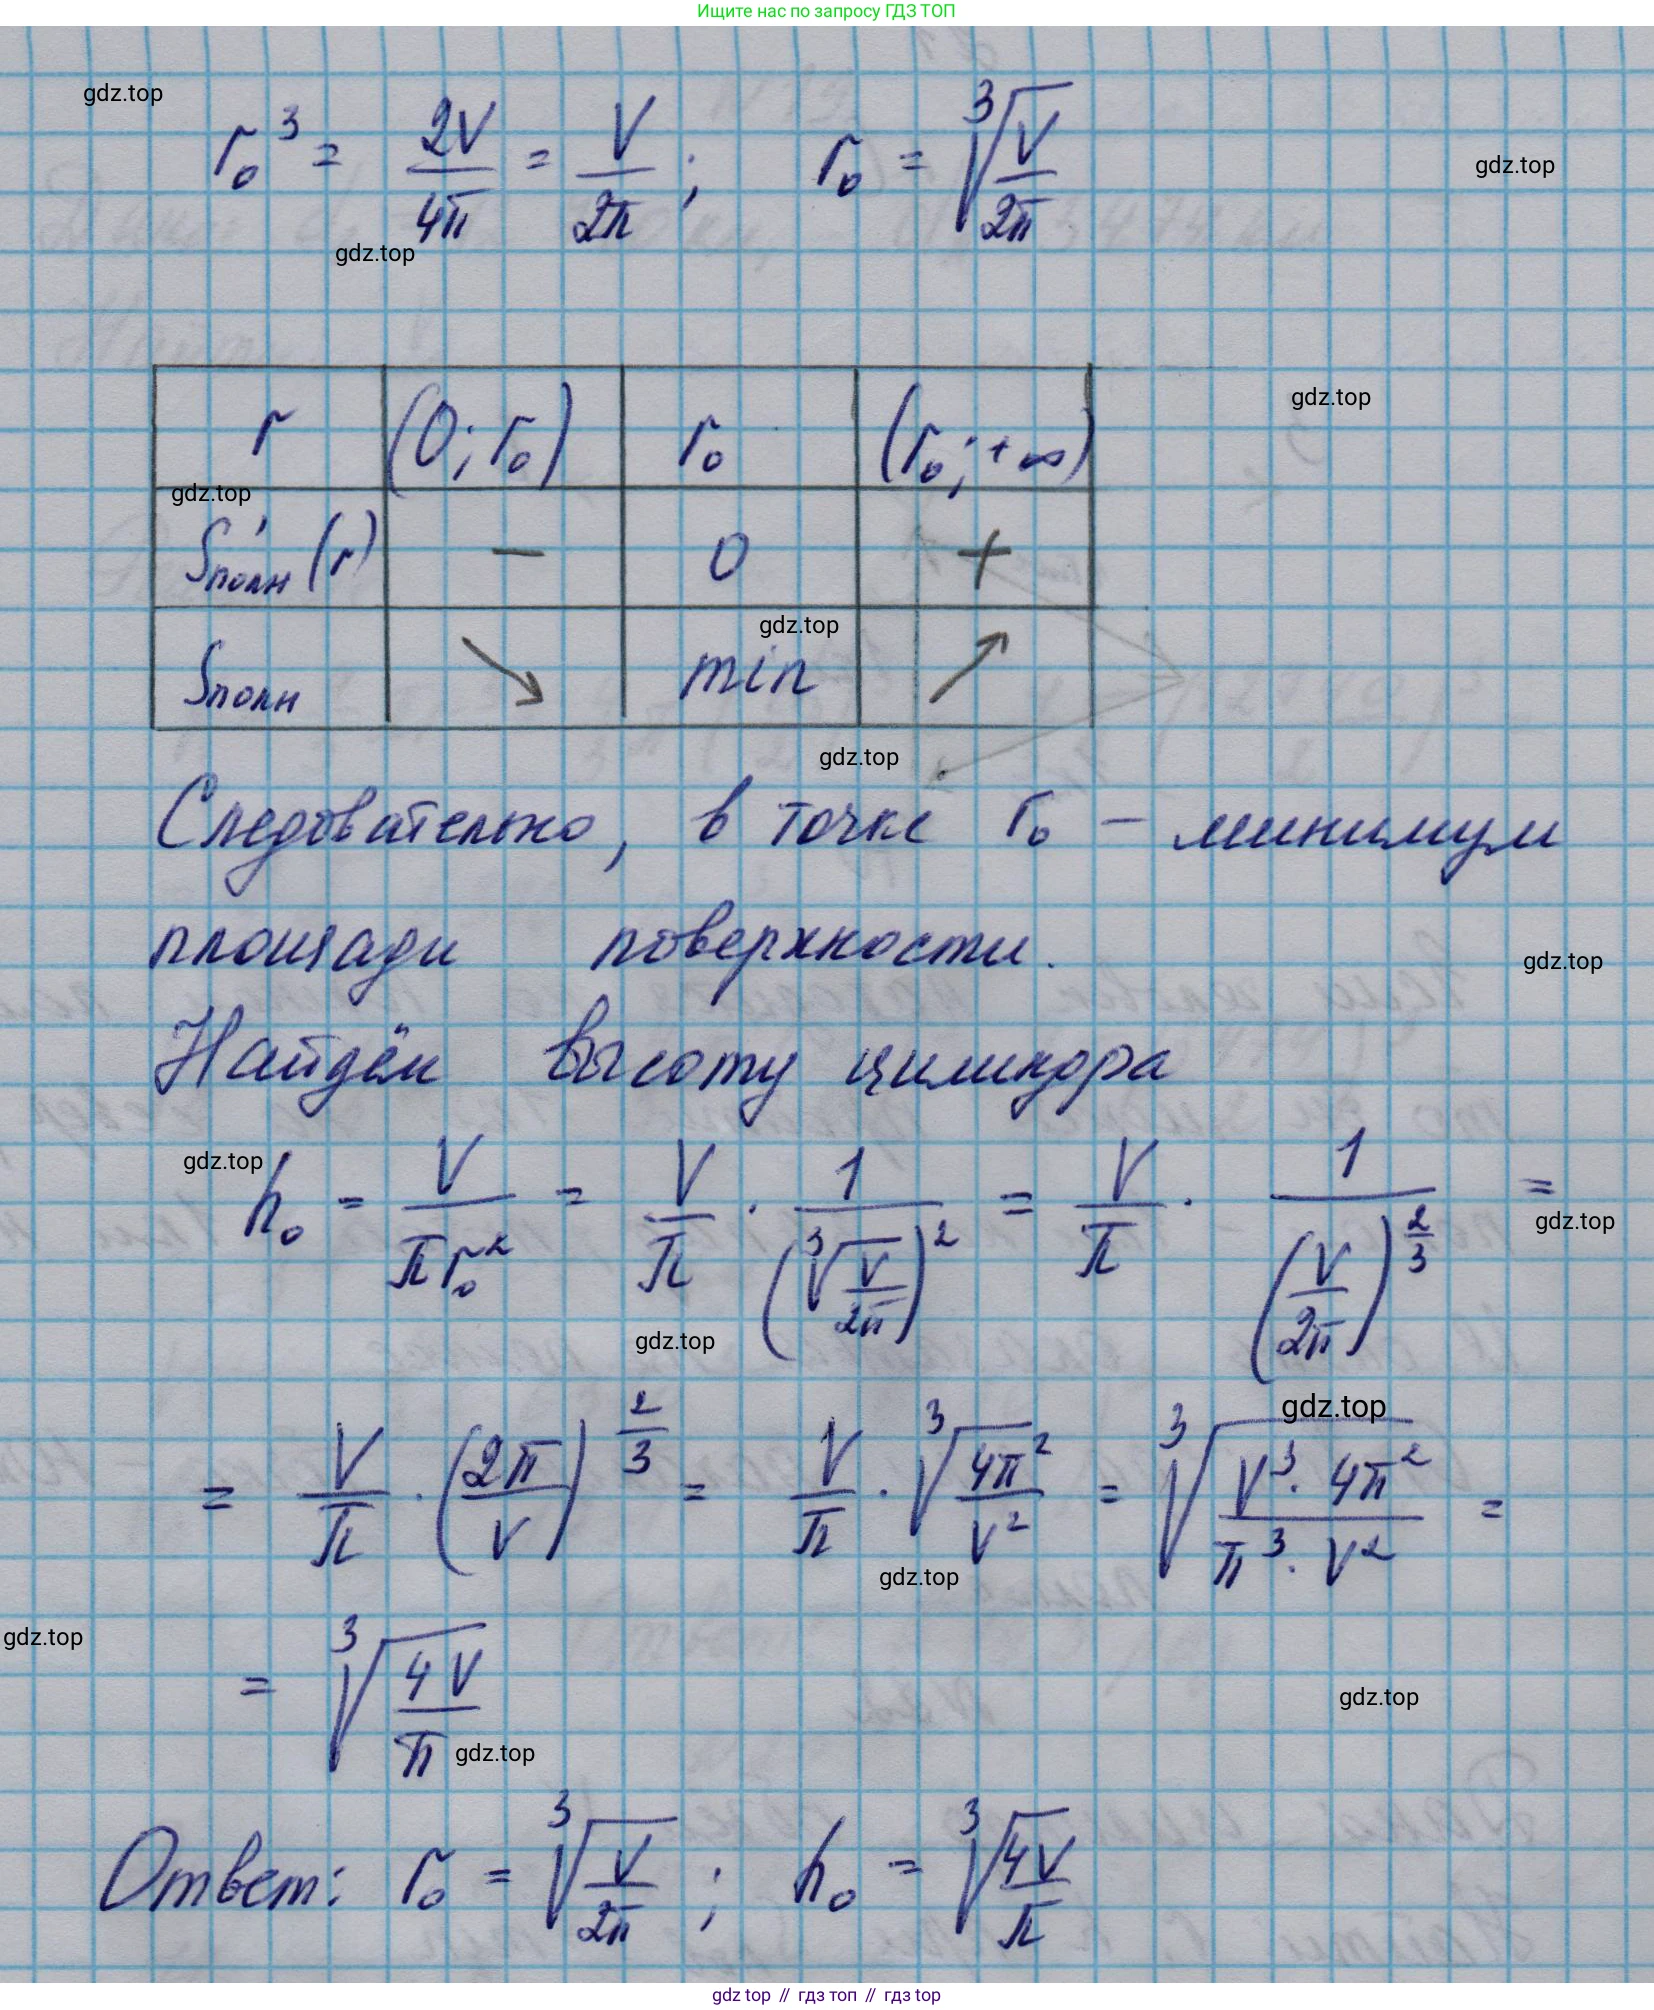 Ищите нас по запросу ГДЗ ТОП
gdz.top
r₀³ = 2V/4π = V/2π ; r₀ = ∛(V/2π)
gdz.top
gdz.top
gdz.top
r (0; r₀) r₀ (r₀; +∞)
gdz.top
S'полн (r) − 0 +
gdz.top
Sполн ↘ min ↗
gdz.top
Следовательно, в точке r₀ – минимум
площади поверхности.
gdz.top
Найдём высоту цилиндра
gdz.top
h₀ = V/(πr₀²) = V/π · 1/(∛(V/2π))² = V/π · 1/(V/2π)^(2/3) =
gdz.top
gdz.top
gdz.top
= V/π · (2π/V)^(2/3) = V/π · ∛(4π²/V²) = ∛((V³ · 4π²)/(π³ · V²)) =
gdz.top
gdz.top
= ∛(4V/π)
gdz.top
gdz.top
Ответ: r₀ = ∛(V/2π) ; h₀ = ∛(4V/π)
gdz top // гдз топ // gdz.top